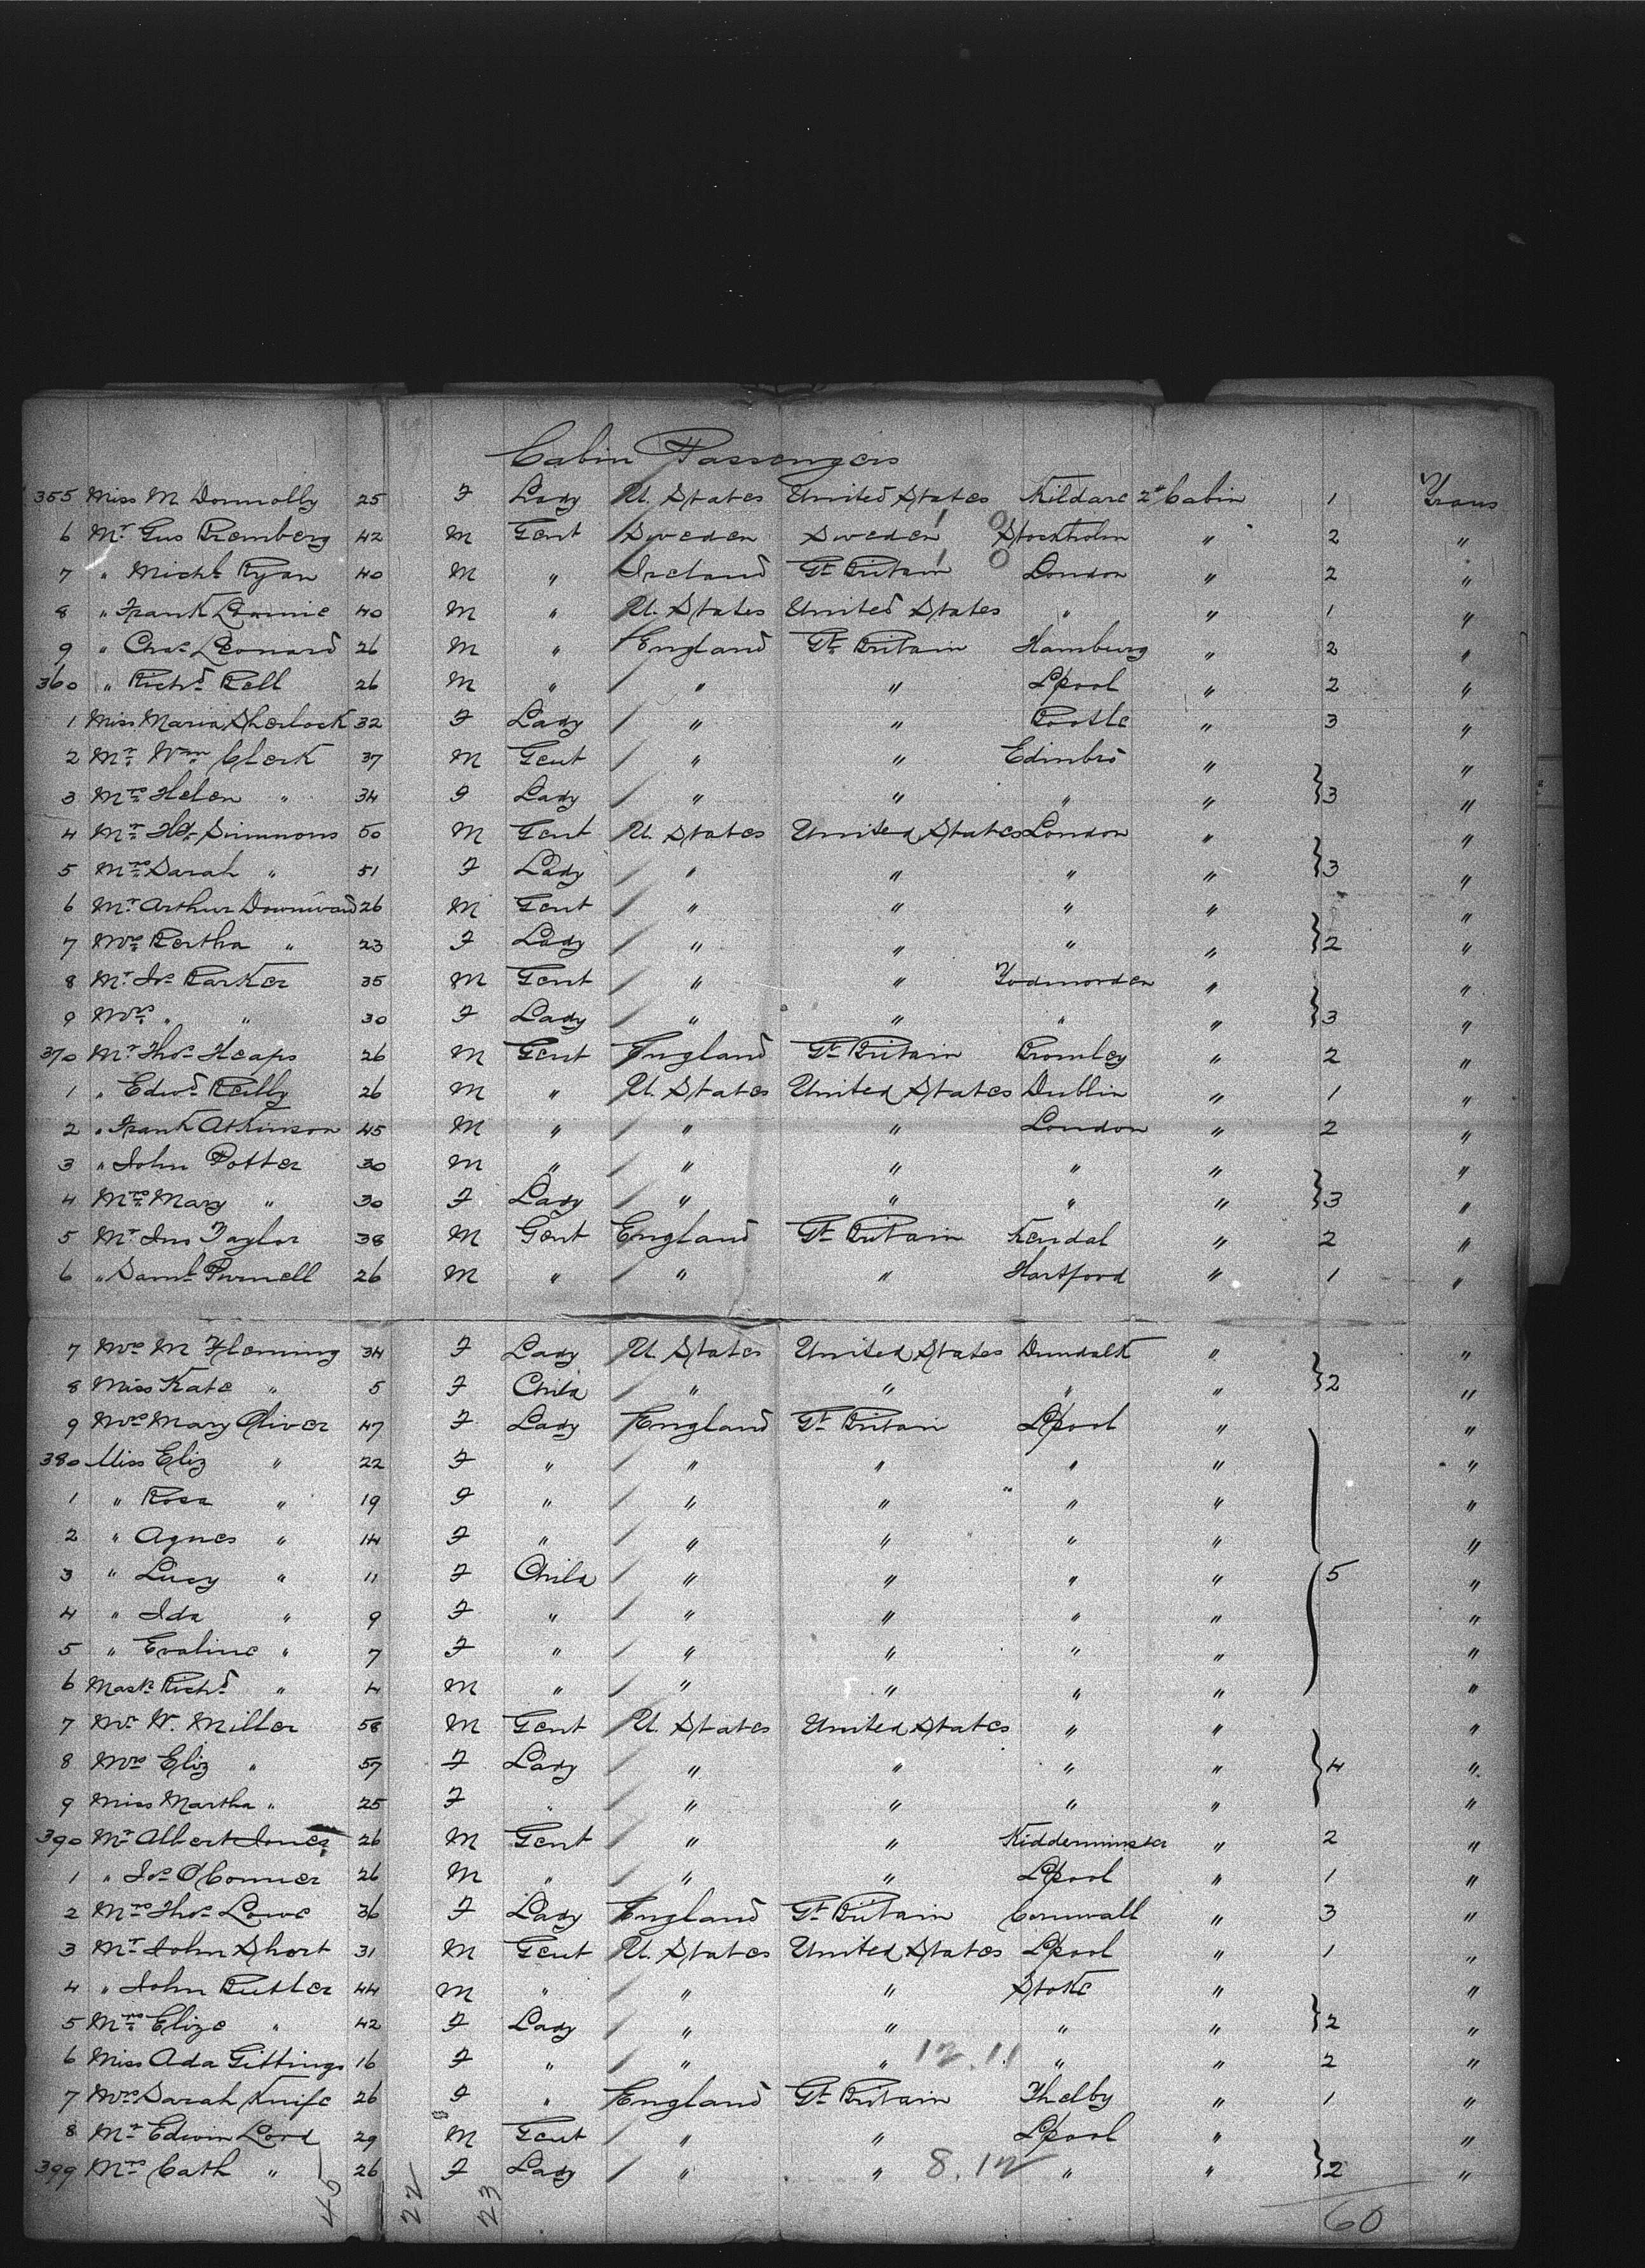 Cabin Passengers
355 Miss M Donnolly 25 F Lady U. States United States Kildare 2d Cabin 1 Trans
6 Mr Gus Bremberg 42 M Gent Sweden Sweden Stockholm " 2 "
7 " Michl Ryan 40 M " Ireland Gt Britain London " 2 "
8 " Frank 40 M " U. States United States " " 1 "
9 " Chas Leonard 26 M " England Gt Britain Hamburg " 2 "
360 " Richd Bell 26 M " " " Lpool " 2 "
1 Miss Maria Sherlock 32 F Lady " " Bootle " 3 "
2 Mr Wm Clerk 37 M Gent " " Edinbro " "
3 Mrs Helen " 34 F Lady " " " " } 3 "
4 Mr Simmons 50 M Gent U. States United States London " "
5 Mrs Sarah " 51 F Lady " " " " } 3 "
6 Mr Arthur Downward 26 M Gent " " " " "
7 Mrs Bertha " 23 F Lady " " " " } 2 "
8 Mr Jos Barker 35 M Gent " " Todmorden " "
9 Mrs " " 30 F Lady " " " " } 3 "
370 Mr Thos Heaps 26 M Gent England Gt Britain Bromley " 2 "
1 " Edwd Reilly 26 M " U. States United States Dublin " 1 "
2 " Frank Atkinson 45 M " " " London " 2 "
3 " John Potter 30 M " " " " " "
4 Mrs Mary " 30 F Lady " " " " } 3 "
5 Mr Jno Taylor 38 M Gent England Gt Britain Kendal " 2 "
6 " Saml Purnell 26 M " " " Hartford " 1 "
7 Mrs M Fleming 34 F Lady U. States United States Dundalk " "
8 Miss Kate " 5 F Child " " " " } 2 "
9 Mrs Mary Oliver 47 F Lady England Gt Britain Lpool " "
380 Miss Eliz " 22 F " " " " " "
1 " Rosa " 19 F " " " " " "
2 " Agnes " 14 F " " " " " "
3 " Lucy " 11 F Child " " " " 5 "
4 " Ida " 9 F " " " " " "
5 " Evaline " 7 F " " " " " "
6 Mastr Richd " 4 M " " " " " "
7 Mr W. Miller 58 M Gent U. States United States " " "
8 Mrs Eliz " 57 F Lady " " " " } 4 "
9 Miss Martha " 25 F " " " " " "
390 Mr Albert Jones 26 M Gent " " Kidderminster " 2 "
1 " Jos O'Conner 26 M " " " Lpool " 1 "
2 Mrs Thos Lowe 36 F Lady England Gt Britain Cornwall " 3 "
3 Mr John Short 31 M Gent U. States United States Lpool " 1 "
4 " John Butler 44 M " " " Stoke " "
5 Mrs Elize " 42 F Lady " " " " } 2 "
6 Miss Ada Gittings 16 F " " " 12.11 " " 2 "
7 Mrs Sarah Knife 26 F " England Gt Britain Thelby " 1 "
8 Mr Edwin Lord 29 M Gent " " Lpool " "
399 Mrs Cath " 26 F Lady " " 8.12 " " } 2 "
45 22 23 60